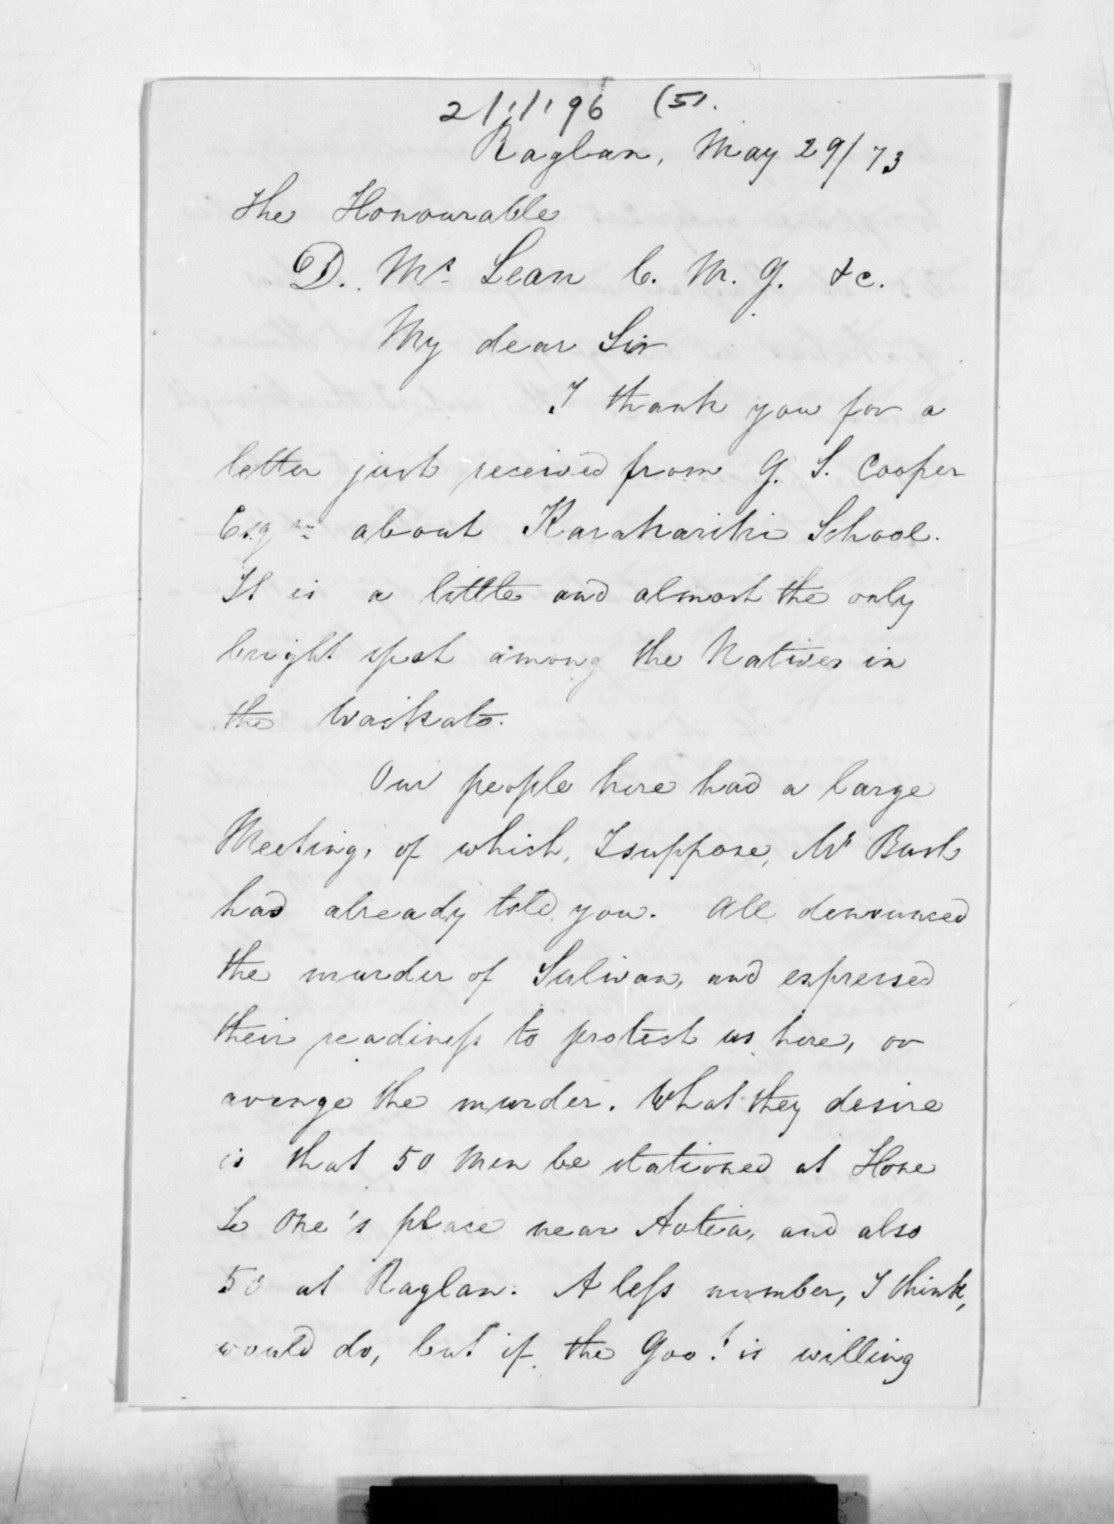 2/1/196 (51.
Raglan, May 29/73
The Honourable
D. Mc Lean C. M. G. &c.
My dear Sir
I thank you for a
letter just received from G. S. Cooper
Esqre about Karakariki School.
It is a little and almost the only
bright spot among the Natives in
the Waikato.
Our people here had a large
Meeting, of which, I suppose, Mr Bush
has already told you. All denounced
the murder of Sulivan, and expressed
their readiness to protect us here, or
avenge the murder. What they desire
is that 50 men be stationed at Hone
Te One's place near Aotea, and also
50 at Raglan. A less number, I think,
would do, but if the Govt. is willing